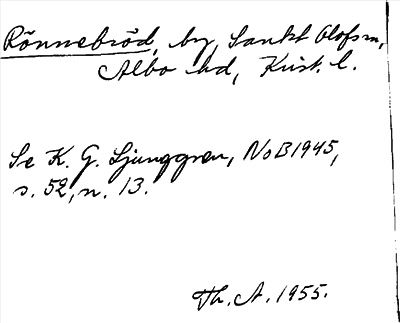 Rönnebröd, by, Sankt Olofs sn,
Albo hd, Krist. l.
Se K. G. Ljunggren, NoB 1945,
s. 52, n. 13.
Th. A. 1955.